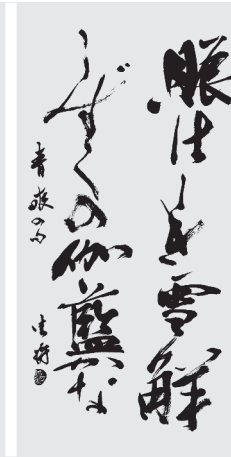 賑はしき雪解
しずくの伽藍かな
青畝の句